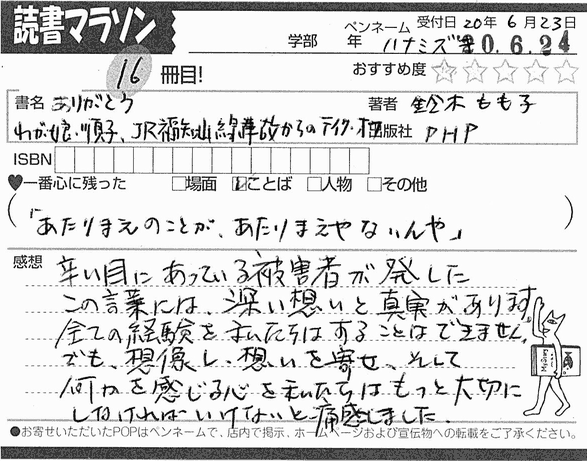 読書マラソン
ペンネーム 受付日 20年 6月23日
学部 年 ハナミズ 0.6.24
16冊目!
おすすめ度
書名 ありがとう 著者 鈴木もも子
わが娘・順子、JR福知山線事故からのテイク・オフ 出版社 PHP
ISBN
♥一番心に残った □場面 ☑ことば □人物 □その他
(「あたりまえのことが、あたりまえやないんや」)
感想 辛い目にあっている被害者が発した
この言葉には、深い想いと真実があります。
全ての経験を私たちはすることはできません。
でも、想像し、想いを寄せ、そして
何かを感じる心を私たちはもっと大切に
しなければいけないと痛感しました。
●お寄せいただいたPOPはペンネームで、店内で掲示、ホームページおよび宣伝物への転載をご了承ください。